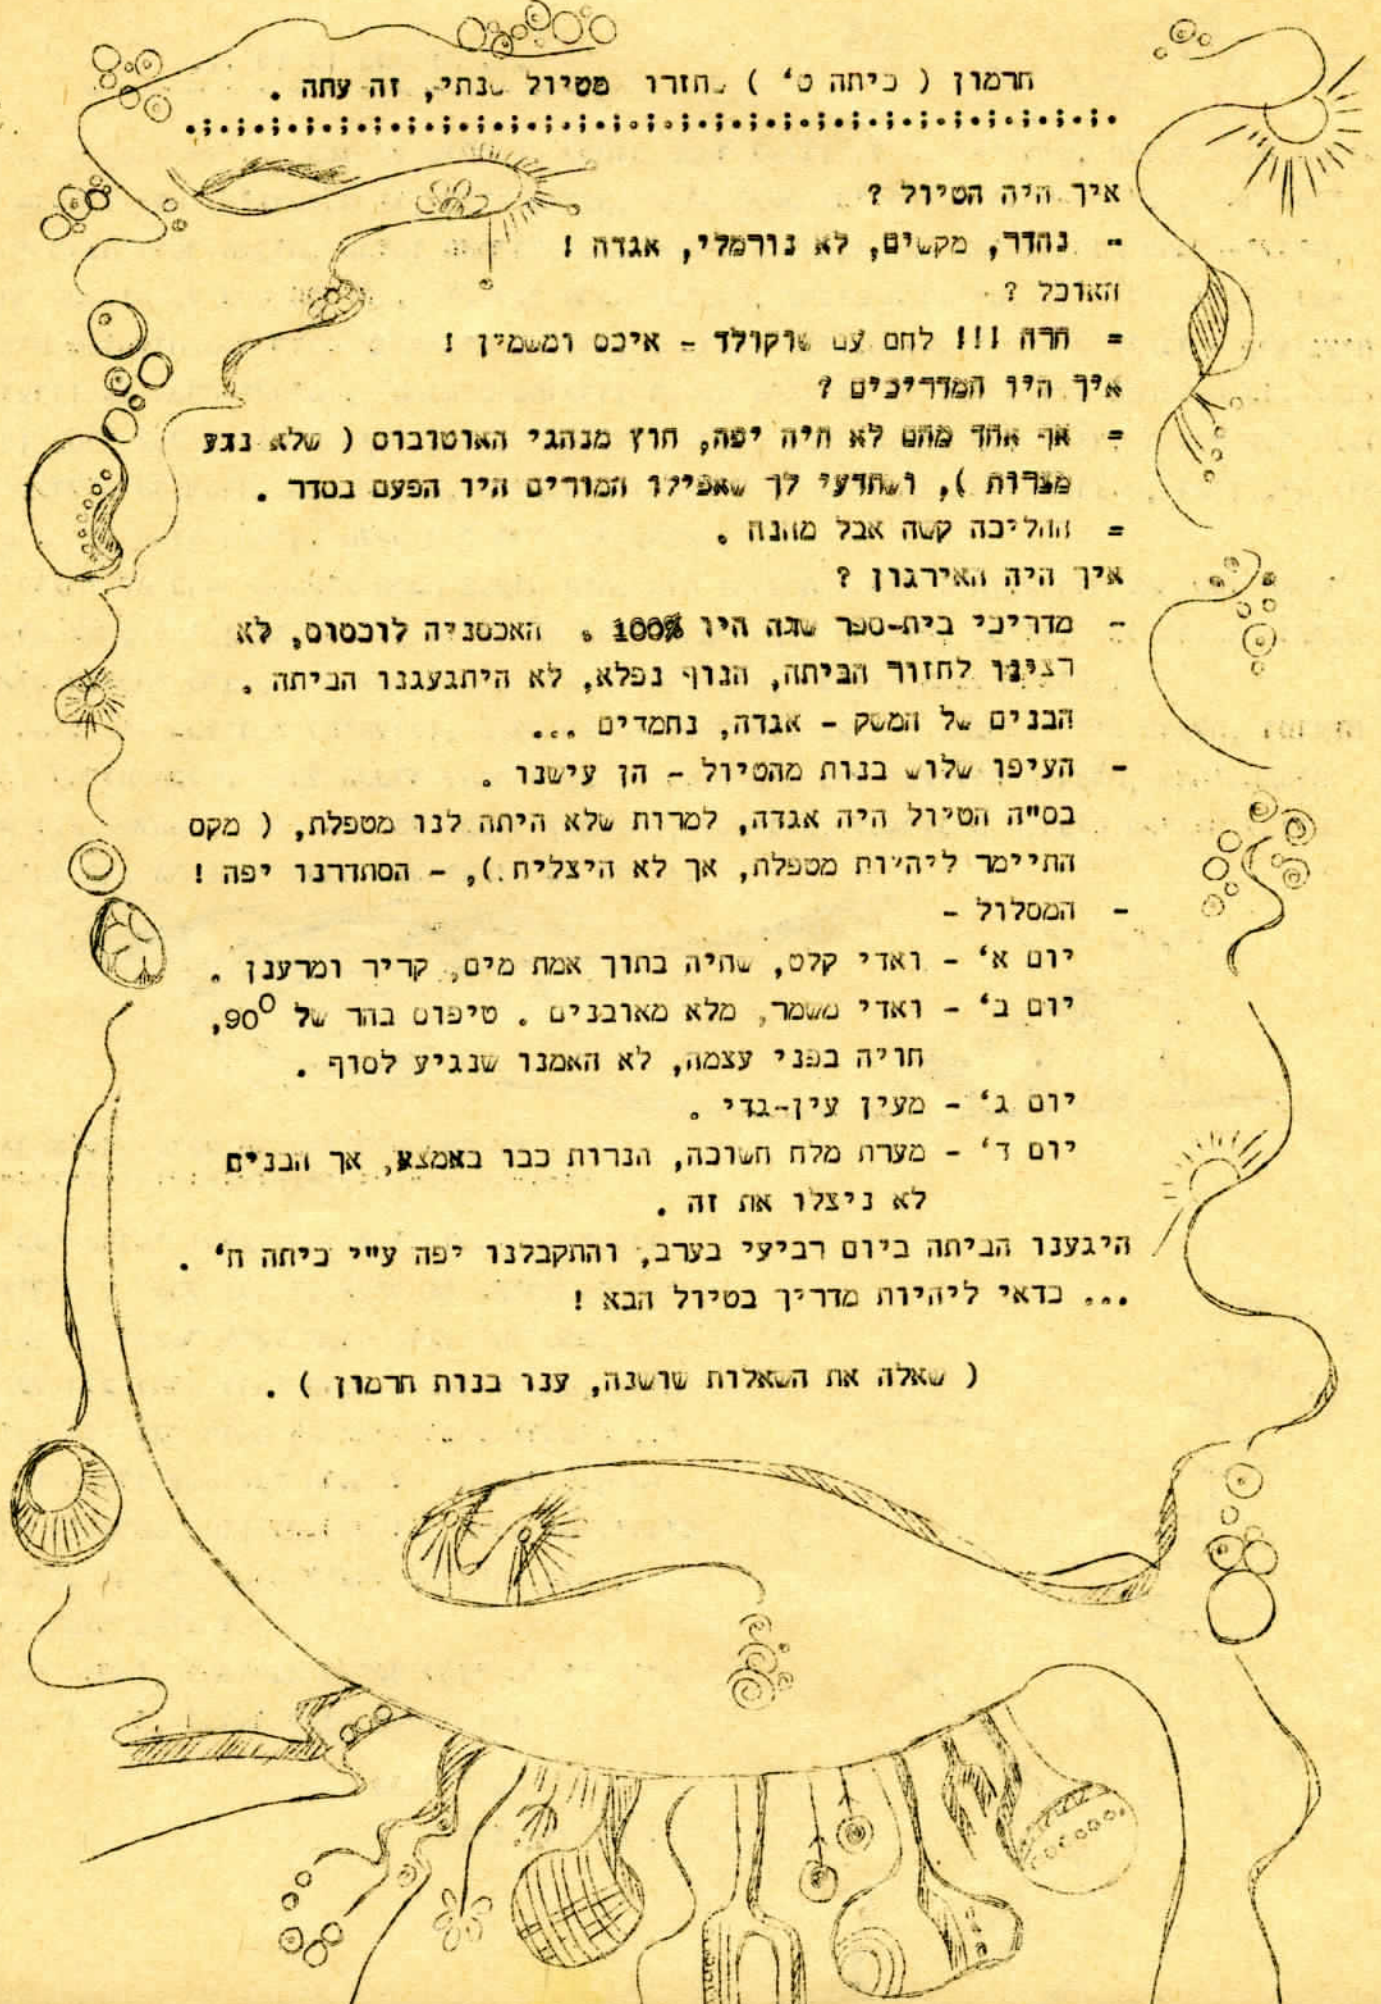 חרמון ( כיתה ט' ) שחזרו מטיול שנתי, זה עתה .
איך היה הטיול ?
- נהדר, מקשים, לא נורמלי, אגדה !
האוכל ?
= חרה !!! לחם עם שוקולד - איכס ומשמין !
איך היו המדריכים ?
= אף אחד מהם לא היה יפה, חוץ מנהגי האוטובוס ( שלא נגע
מצרות ), ושתדעי לך שאפילו המורים היו הפעם בסדר .
= ההליכה קשה אבל מהנה .
איך היה האירגון ?
- מדריכי בית-ספר שדה היו 100% . האכסניה לוכסוס, לא
רצינו לחזור הביתה, הנוף נפלא, לא היתגעגנו הביתה .
הבנים של המשק - אגדה, נחמדים ...
- העיפו שלוש בנות מהטיול - הן עישנו .
בס"ה הטיול היה אגדה, למרות שלא היתה לנו מטפלת, ( מקס
התיימר ליהיות מטפלת, אך לא היצליח ), - הסתדרנו יפה !
- המסלול -
יום א' - ואדי קלט, שהיה בתוך אמת מים, קריר ומרענן .
יום ב' - ואדי משמר, מלא מאובנים . טיפוס בהר של 90°,
חויה בפני עצמה, לא האמנו שנגיע לסוף .
יום ג' - מעין עין-גדי .
יום ד' - מערת מלח חשוכה, הנרות כבו באמצע, אך הבנים
לא ניצלו את זה .
היגענו הביתה ביום רביעי בערב, והתקבלנו יפה ע"י כיתה ח' .
... כדאי ליהיות מדריך בטיול הבא !
( שאלה את השאלות שושנה, ענו בנות חרמון ) .